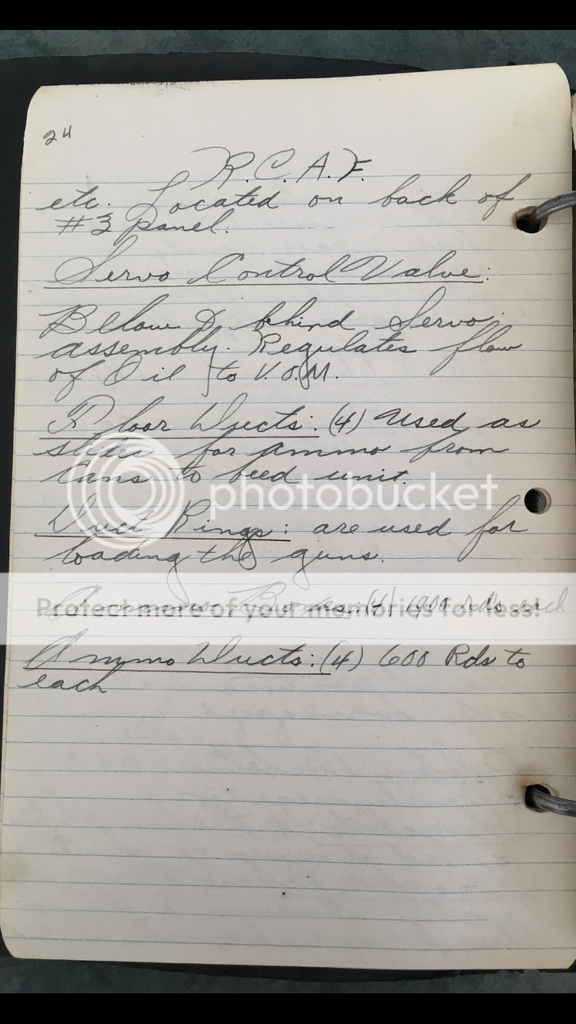 24
R.C.A.F.
etc. Located on back of
#3 panel.
Servo Control Valve:
Below & behind Servo
assembly. Regulates flow
of Oil to V.O.M.
Floor Ducts: (4) Used as
slides for ammo from
cans to feed unit.
photobucket
Duct Rings: are used for
loading the guns.
Protect more of your memories for less!
(4) rds each
Ammo Ducts: (4) 600 Rds to
each